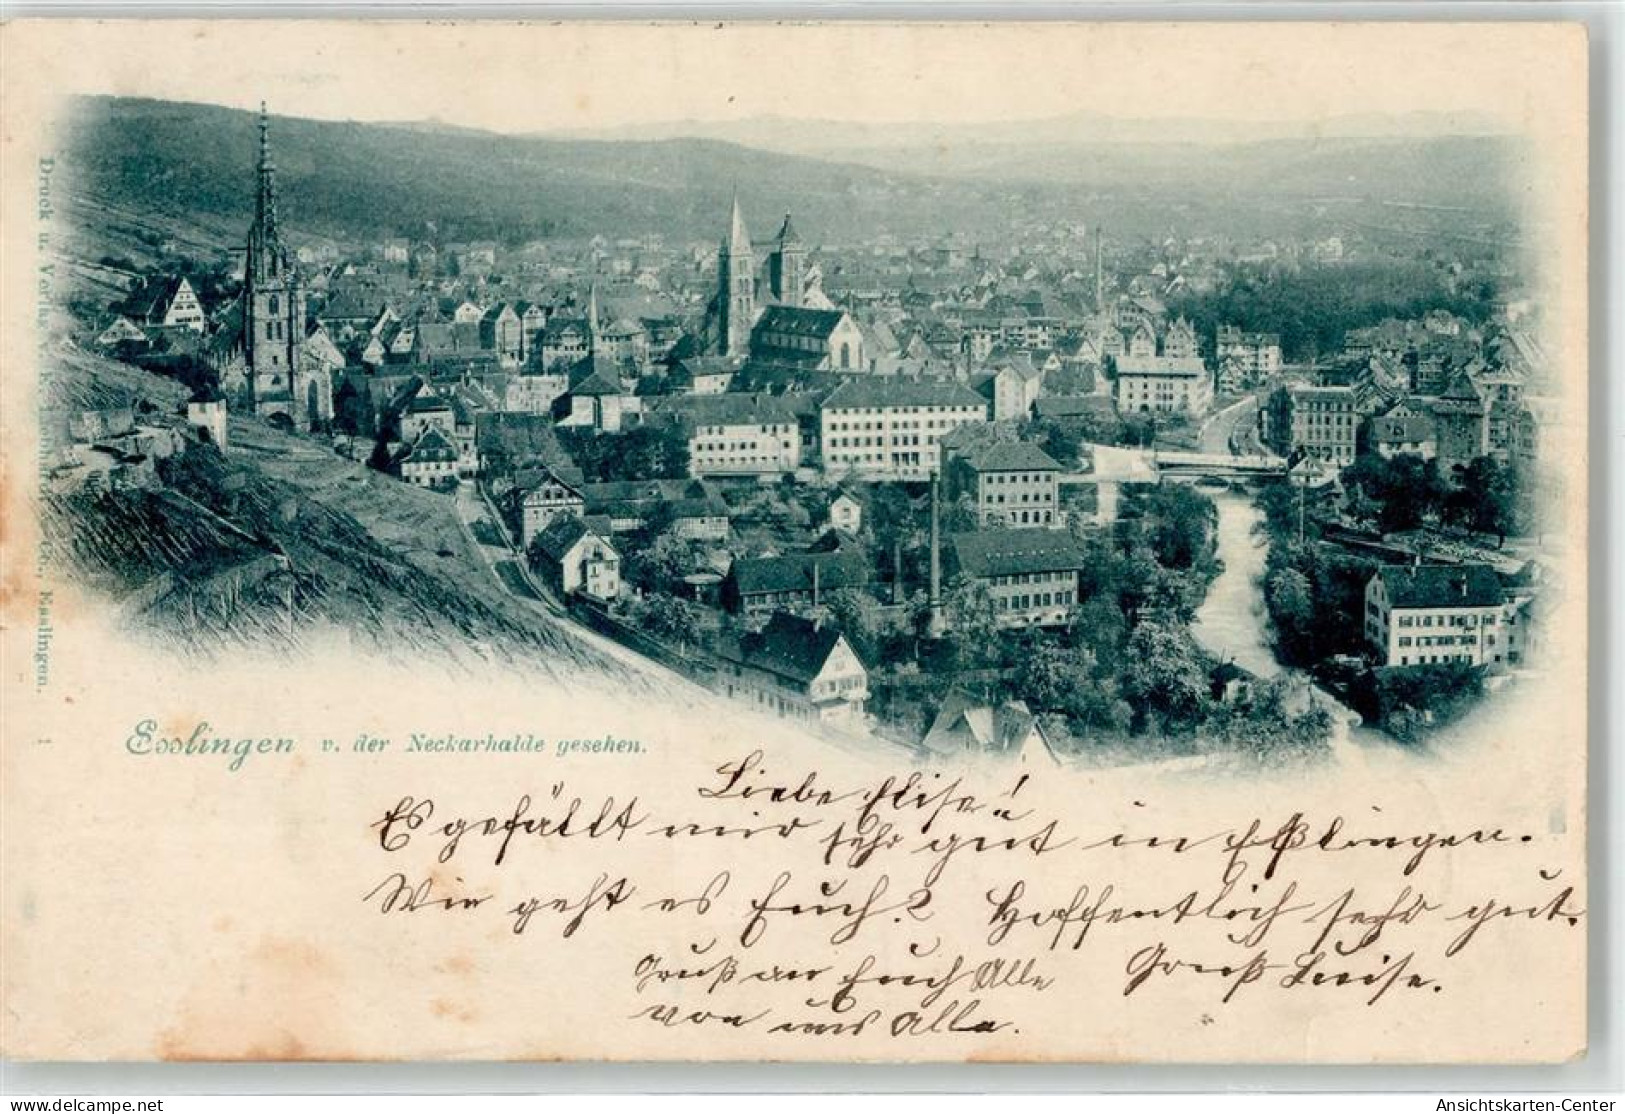 Esslingen v. der Neckarhalde gesehen.
Liebe Elise!
Es gefällt mir sehr gut in Eßlingen.
Wie geht es Euch? Hoffentlich sehr gut.
Gruß an Euch Alle Gruß Luise.
von uns Alle.
Druck u. Verlag v. & Co., Esslingen. 1
www.delcampe.net mcpo
Ansichtskarten-Center